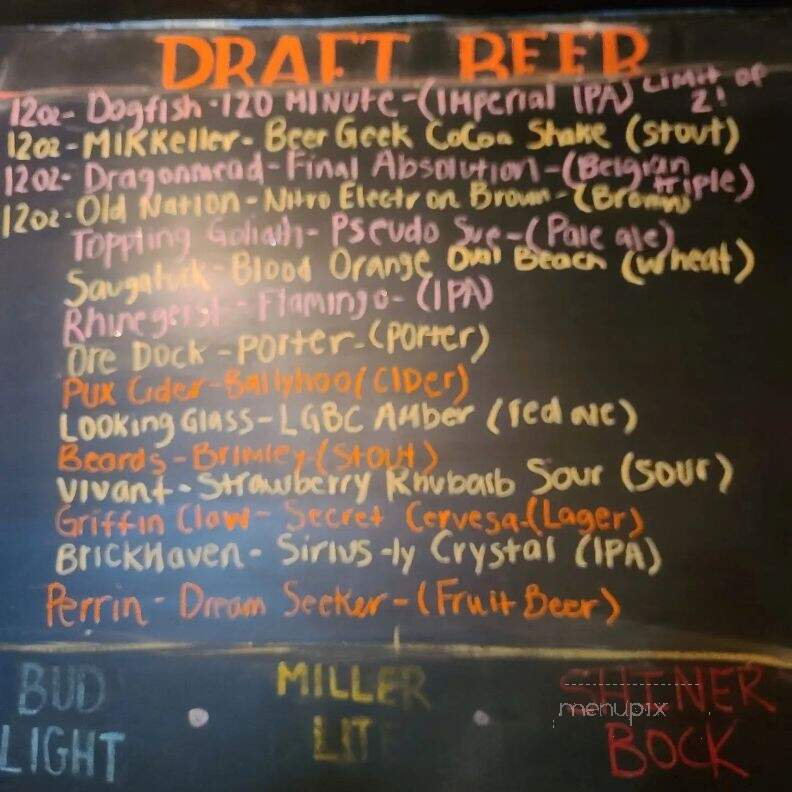 DRAFT BEER
12oz- Dogfish -120 Minute-(Imperial IPA) Limit of 2!
12oz-Mikkeller- Beer Geek Cocoa Shake (stout)
12oz- Dragonmead-Final Absolution-(Belgian triple)
12oz-Old Nation-Nitro Electron Brown-(Brown)
Toppling Goliath- Pseudo Sue-(Pale ale)
Saugatuck-Blood Orange Oval Beach (wheat)
Rhinegeist-Flamingo-(IPA)
Ore Dock-Porter-(Porter)
Pux Cider-Ballyhoo(CIDer)
Looking Glass-LGBC Amber (red ale)
Beards-Brimley(Stout)
Vivant-Strawberry Rhubarb Sour (sour)
Griffin Claw- Secret Cervesa-(Lager)
BrickHaven- Sirius-ly Crystal (IPA)
Perrin- Dream Seeker-(Fruit Beer)
BUD LIGHT • MILLER LITE • SHINER BOCK
menupix